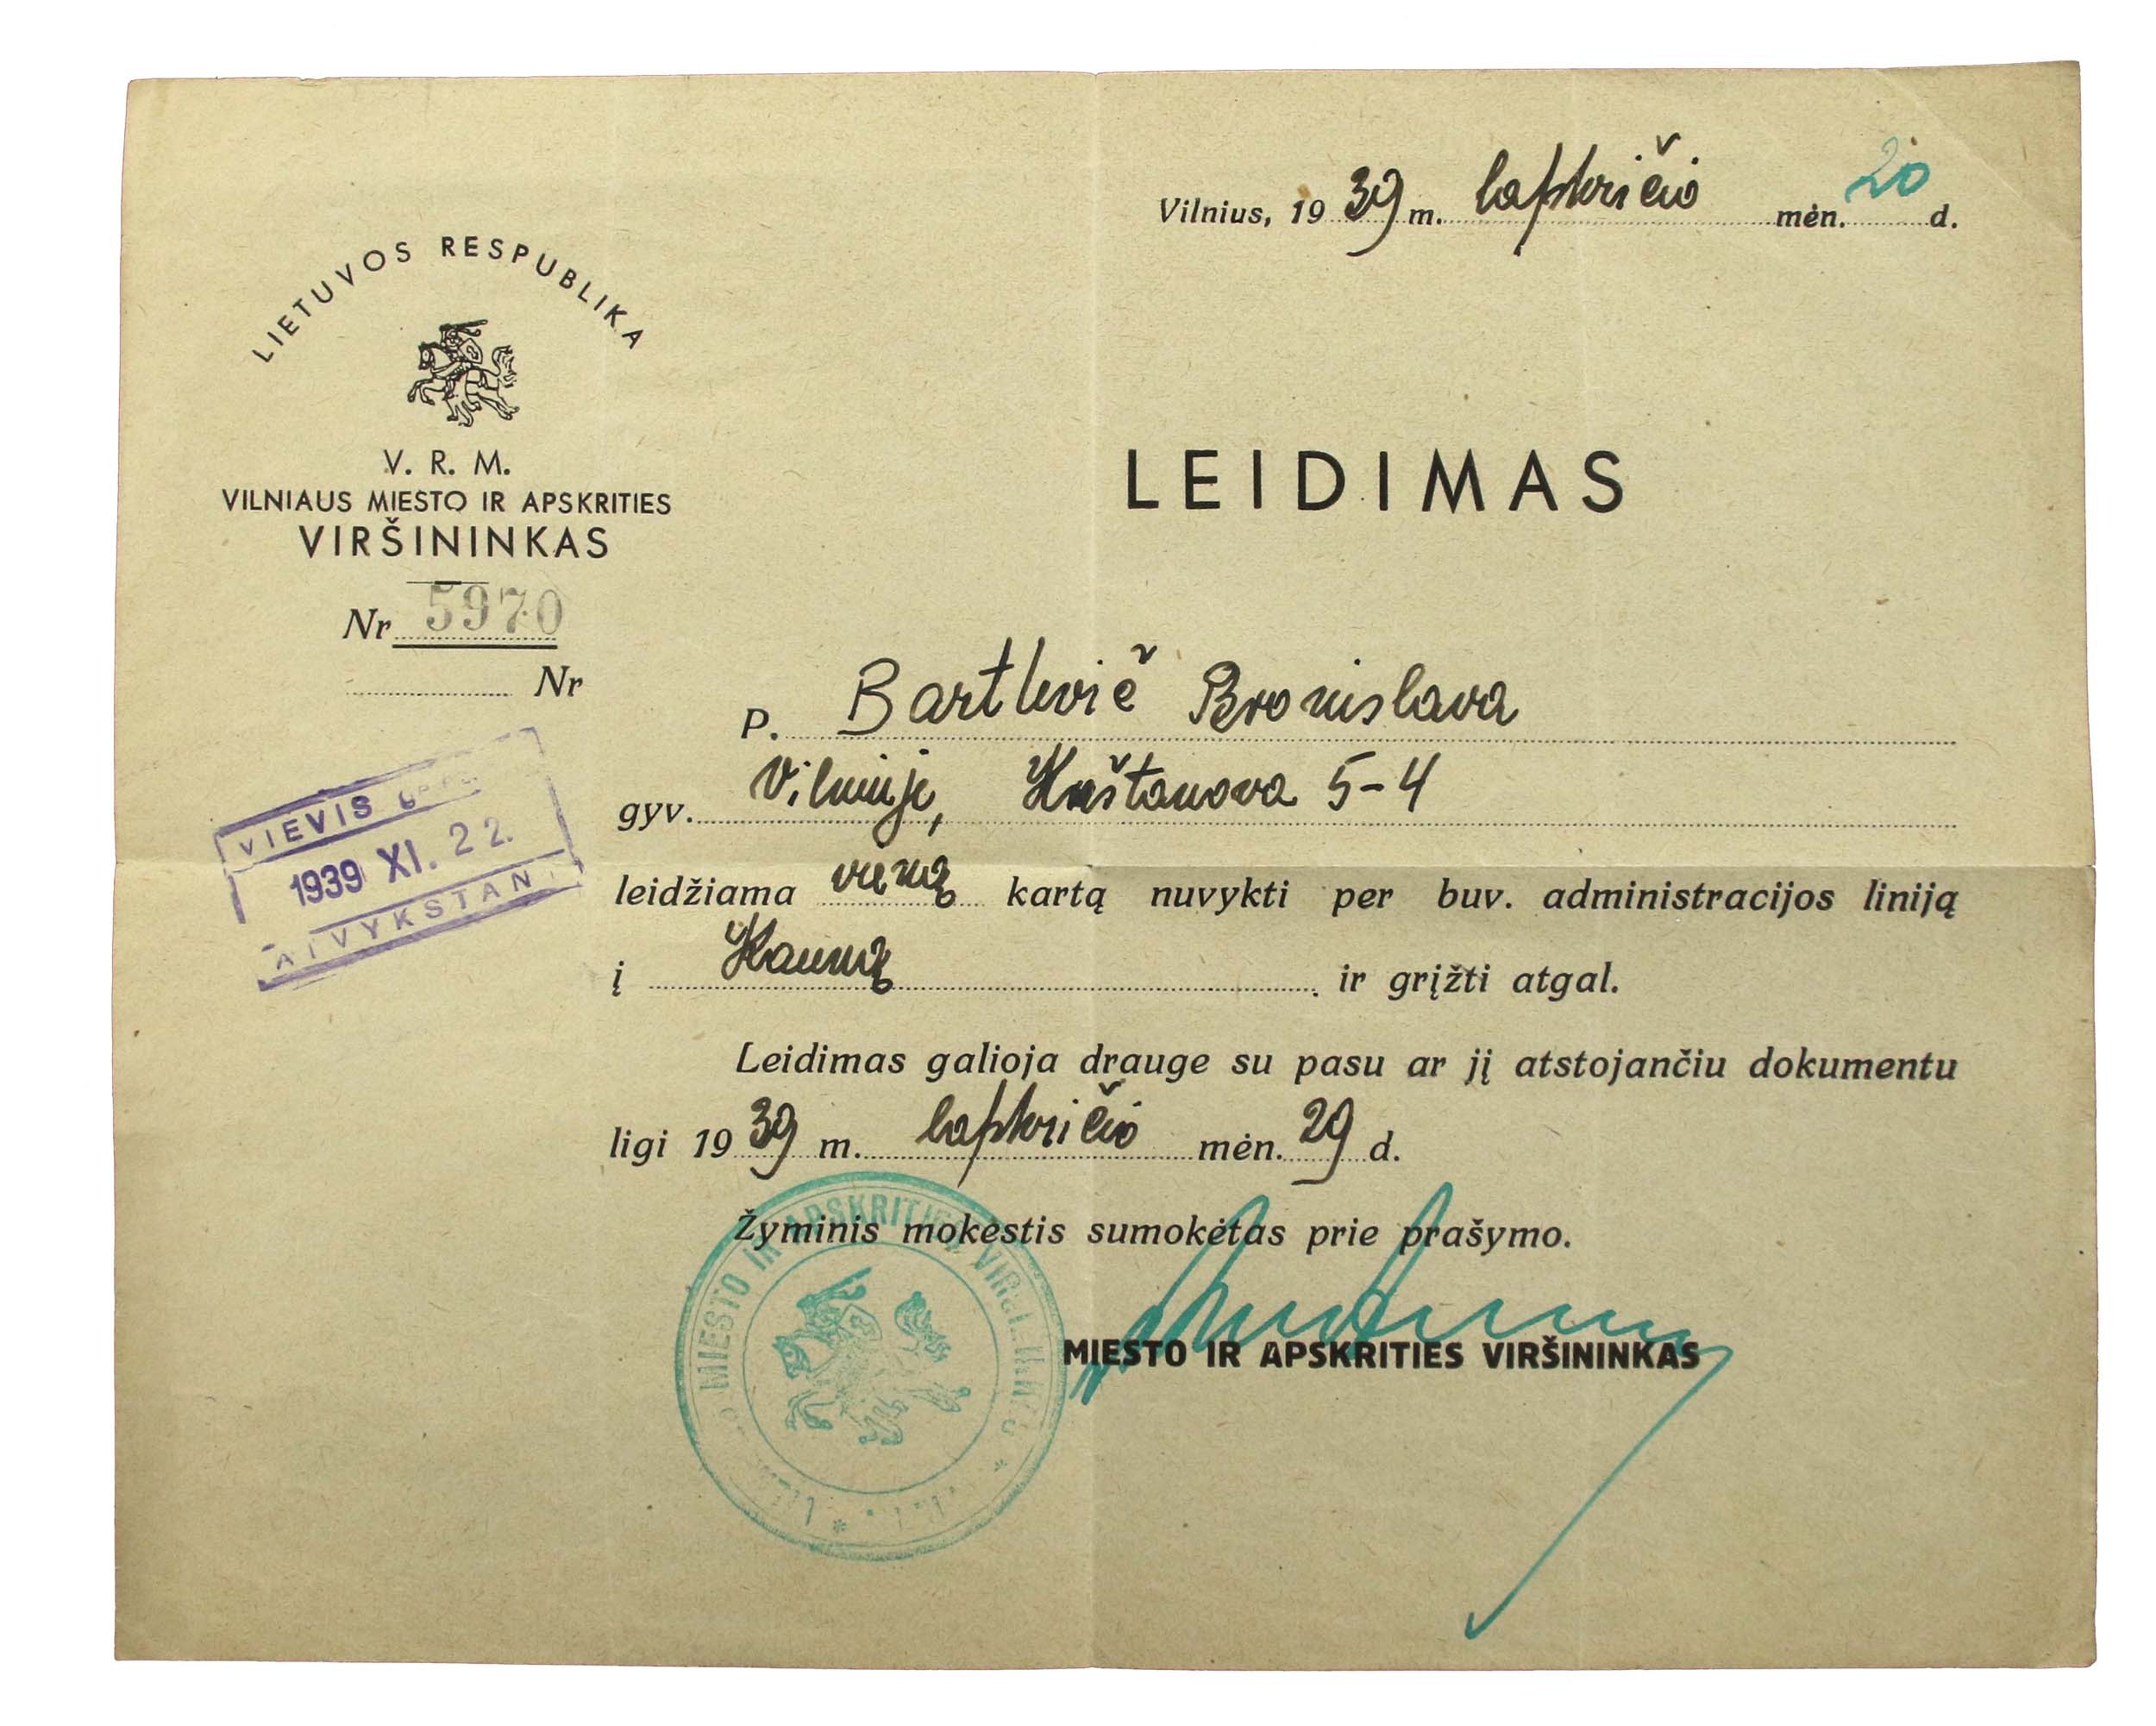 Vilnius, 1939 m. lapkričio mėn. 20 d.
LIETUVOS RESPUBLIKA
V. R. M.
VILNIAUS MIESTO IR APSKRITIES
VIRŠININKAS
Nr 5970
Nr
LEIDIMAS
P. Bartlevič Bronislava
gyv. Vilniuje, Kaštanova 5-4
VIEVIS
1939 XI. 22.
ATVYKSTAN
leidžiama vieną kartą nuvykti per buv. administracijos liniją
į Kauną ir grįžti atgal.
Leidimas galioja drauge su pasu ar jį atstojančiu dokumentu
ligi 1939 m. lapkričio mėn. 29 d.
Žyminis mokestis sumokėtas prie prašymo.
MIESTO IR APSKRITIES VIRŠININKAS
MIESTO IR APSKRITIES